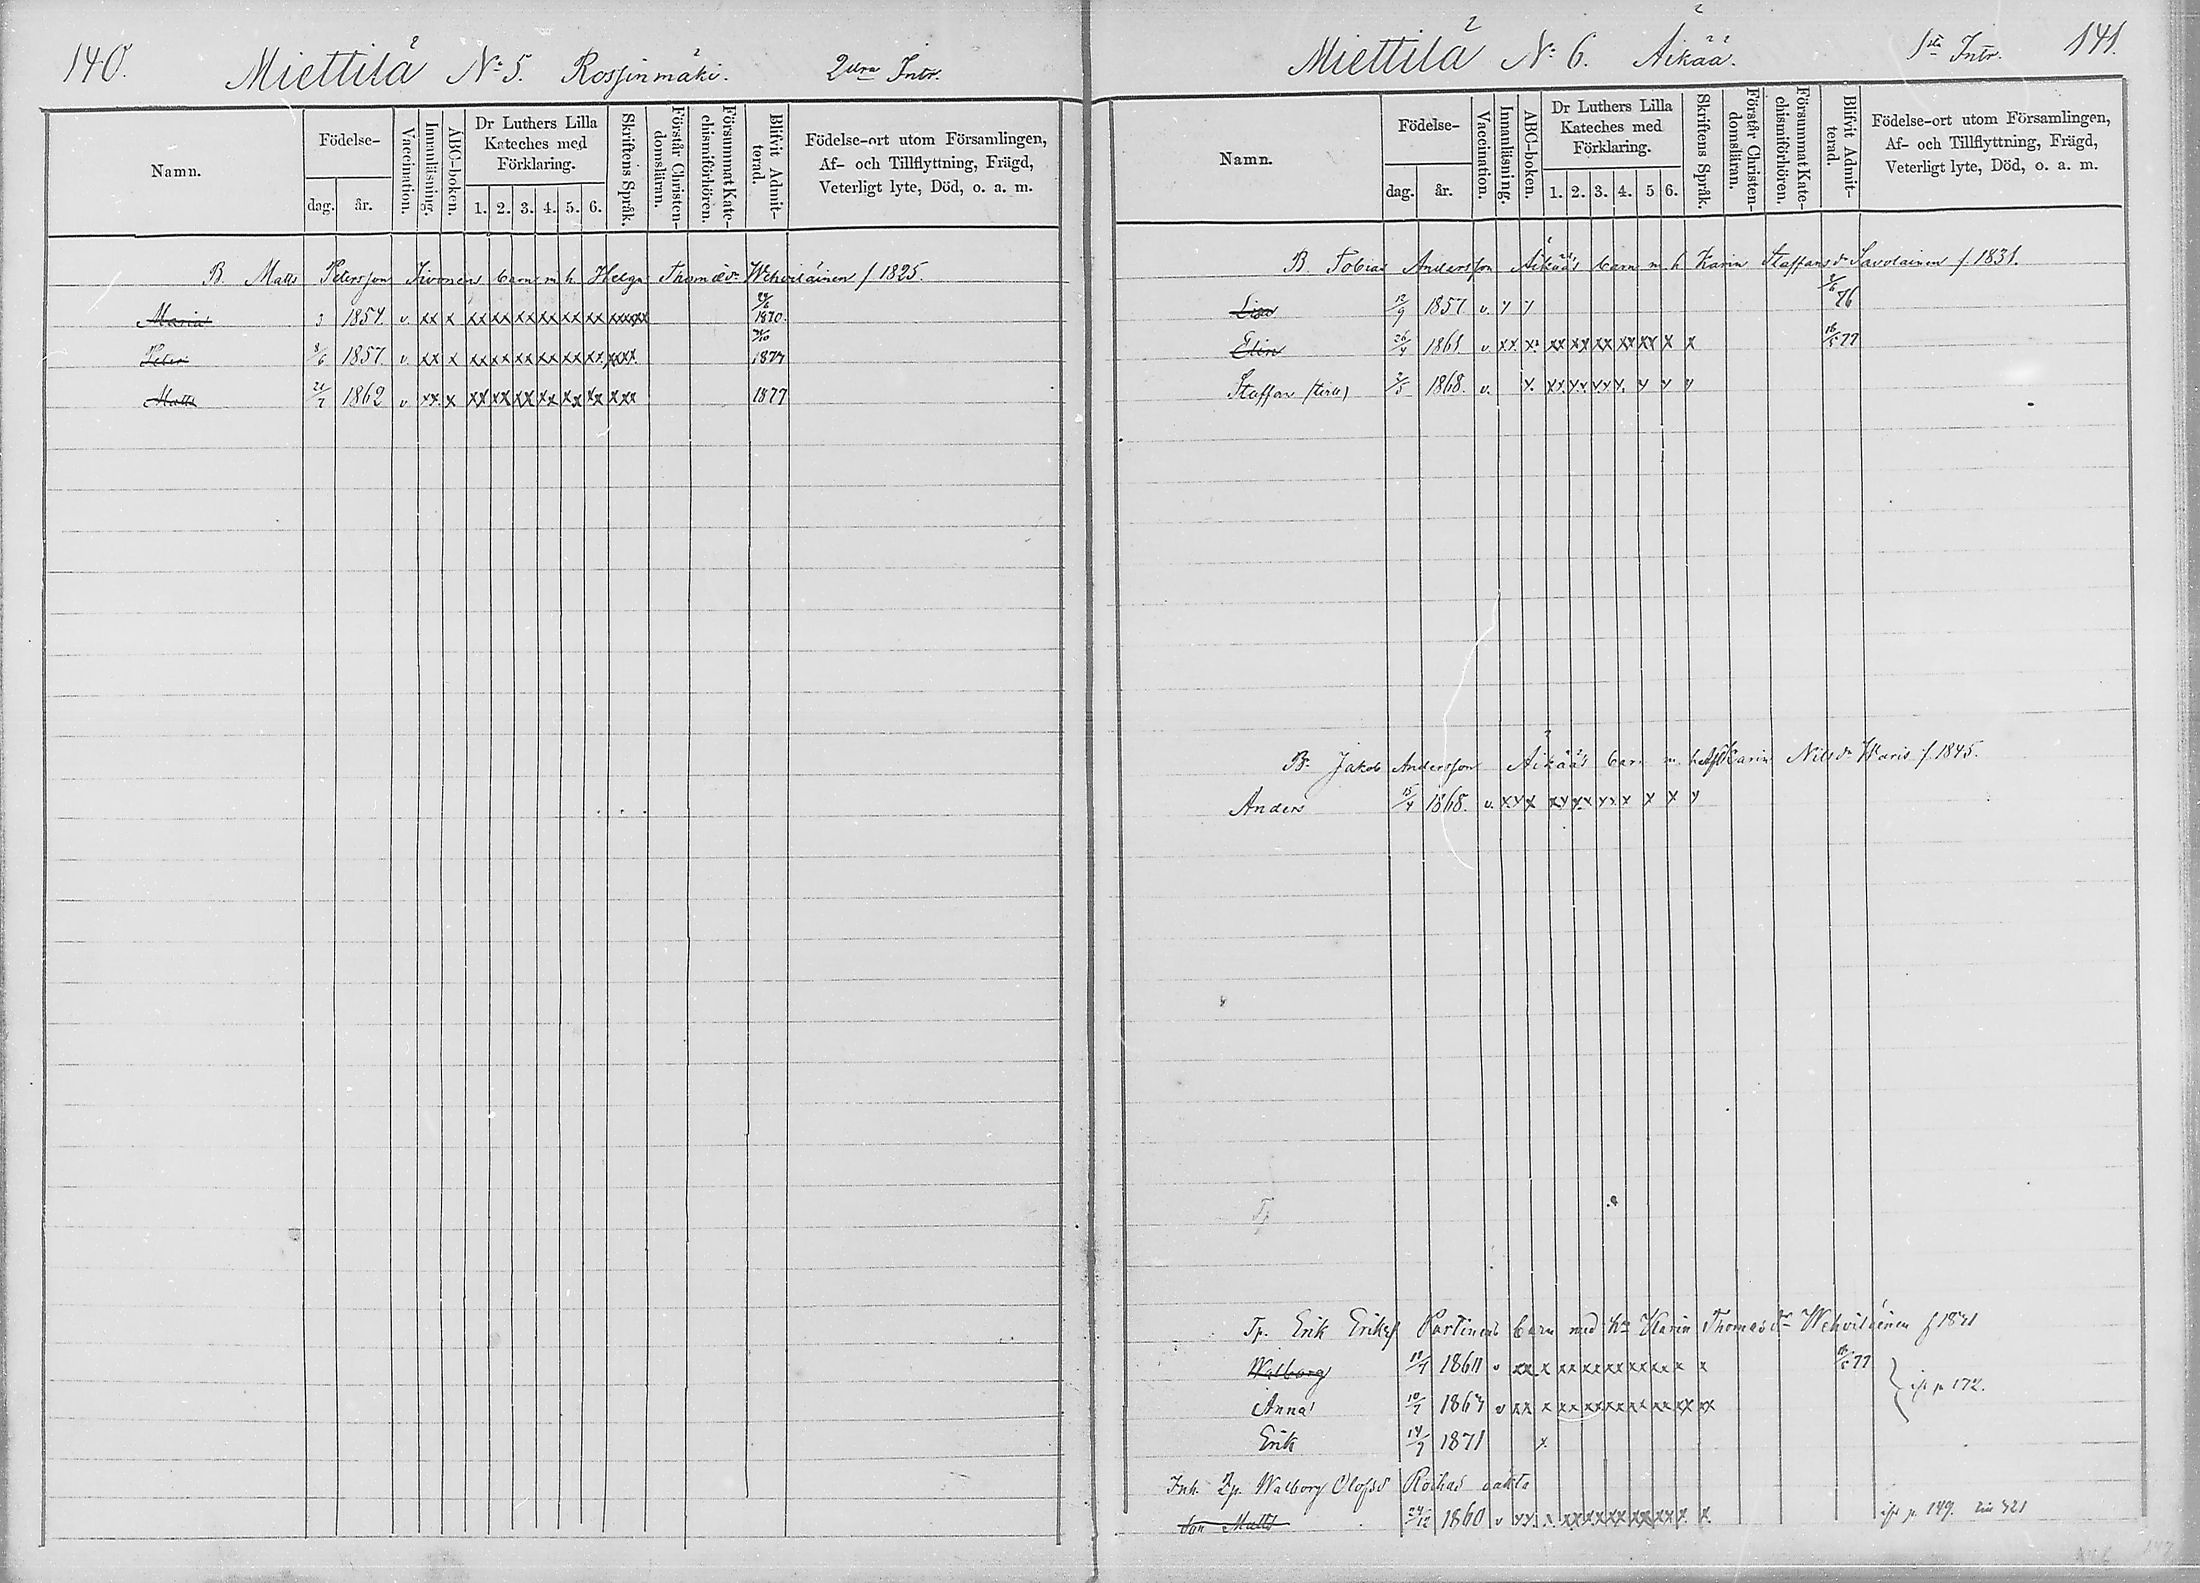 140.
Miettilä No 5. Rossinmäki. 2dra Intr.
Namn.
Födelse-
dag. år.
Vaccination.
Innanläsning.
ABC-boken.
Dr Luthers Lilla Kateches med Förklaring.
1. 2. 3. 4. 5. 6.
Skriftens Språk.
Förstår Christendomsläran.
Försummat Katechismiförhören.
Blifvit Admitterad.
Födelse-ort utom Församlingen,
Af- och Tillflyttning, Frägd,
Veterligt lyte, Död, o. a. m.
B. Matts Petersson Jivonens barn m. h. Helga Thomædr Wehviläinen f 1825.
Maria 3 1854. v. xx x xx xx xx xx xx xx xxxxx 1870.
Peter 8/6 1857. v. xx x xx xx xx xx xx xx xxxx 1874
Matts 21/7 1862 v xx x xx xx xx xx xx xx xxx 1877
Miettilä No 6. Äikää. 1sta Intr. 141.
Namn.
Födelse-
dag. år.
Vaccination.
Innanläsning.
ABC-boken.
Dr Luthers Lilla Kateches med Förklaring.
1. 2. 3. 4. 5 6.
Skriftens Språk.
Förstår Christendomsläran.
Försummat Katechismiförhören.
Blifvit Admitterad.
Födelse-ort utom Församlingen,
Af- och Tillflyttning, Frägd,
Veterligt lyte, Död, o. a. m.
B. Tobias Andersson Äikääs barn m h Karin Staffansdr Savolainen f 1831.
Lisa 12/9 1857 v. x x 76
Elin 26/4 1861. v xx x xx xx xx xx xx x x 16/5 77
Staffan 2/5 1868. v. x xx xx xx x x x x
B. Jakob Andersson Äikääs barn m. h Karin Nilsdr Waris f 1845.
Anders 15/4 1868. v. xx x xx xx xx x x x x
Tp. Erik Eriks Partinens barn med h. Karin Thomasdr Wehviläinen f 1841
Walborg 1864 v xx x xx xx xx xx xx x x 16/5 77
Anna 10/7 1867 v xx x xx xx xx xx xx xx xx
p 172.
Erik 14/9 1871 x
Inh. Walborg Olofsd oäkta
Son Matts 24/12 1860 v xx x xx xx xx xx xx x x p. 149.